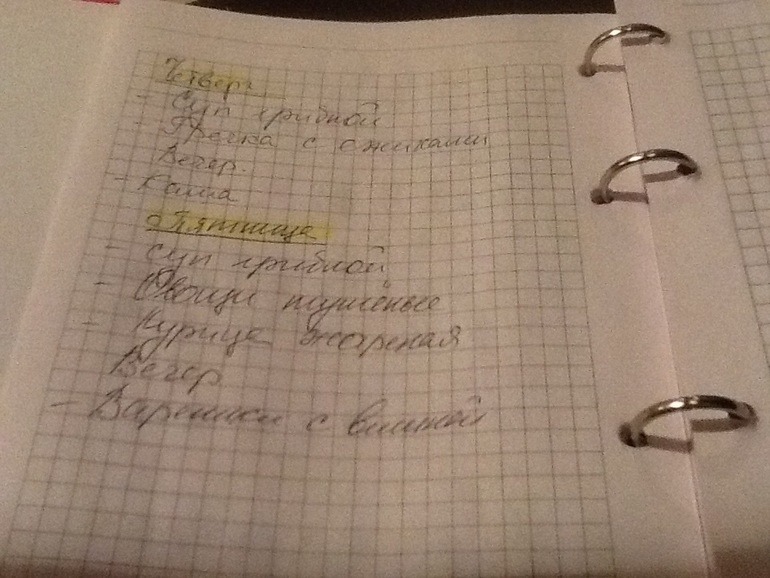 Четверг
- Суп грибной
- Гречка с ежиками
Вечер.
- Каша
Пятница
- Суп грибной
- Овощи тушёные
- Курица жареная
Вечер
- Вареники с вишней